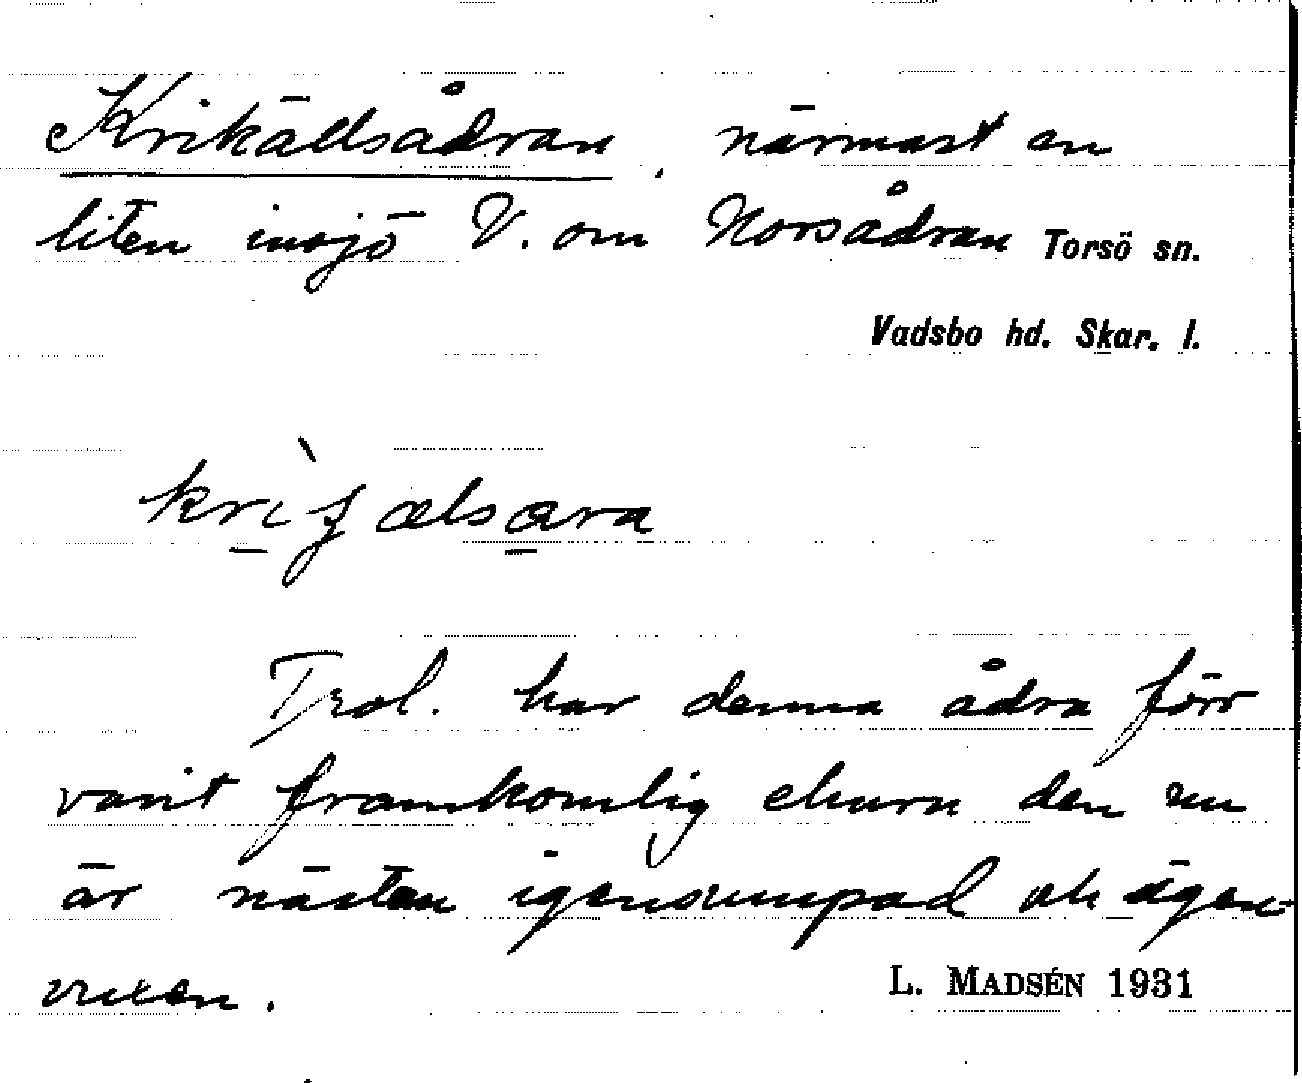 Krikällsådran, närmast en
liten insjö V. om Norsådran Torsö sn.
Vadsbo hd. Skar. l.
Trol. har denna ådra förr
varit framkomlig ehuru den nu
är nästen igensumpad oh igen-
vuxen.
L. MADSÉN 1931